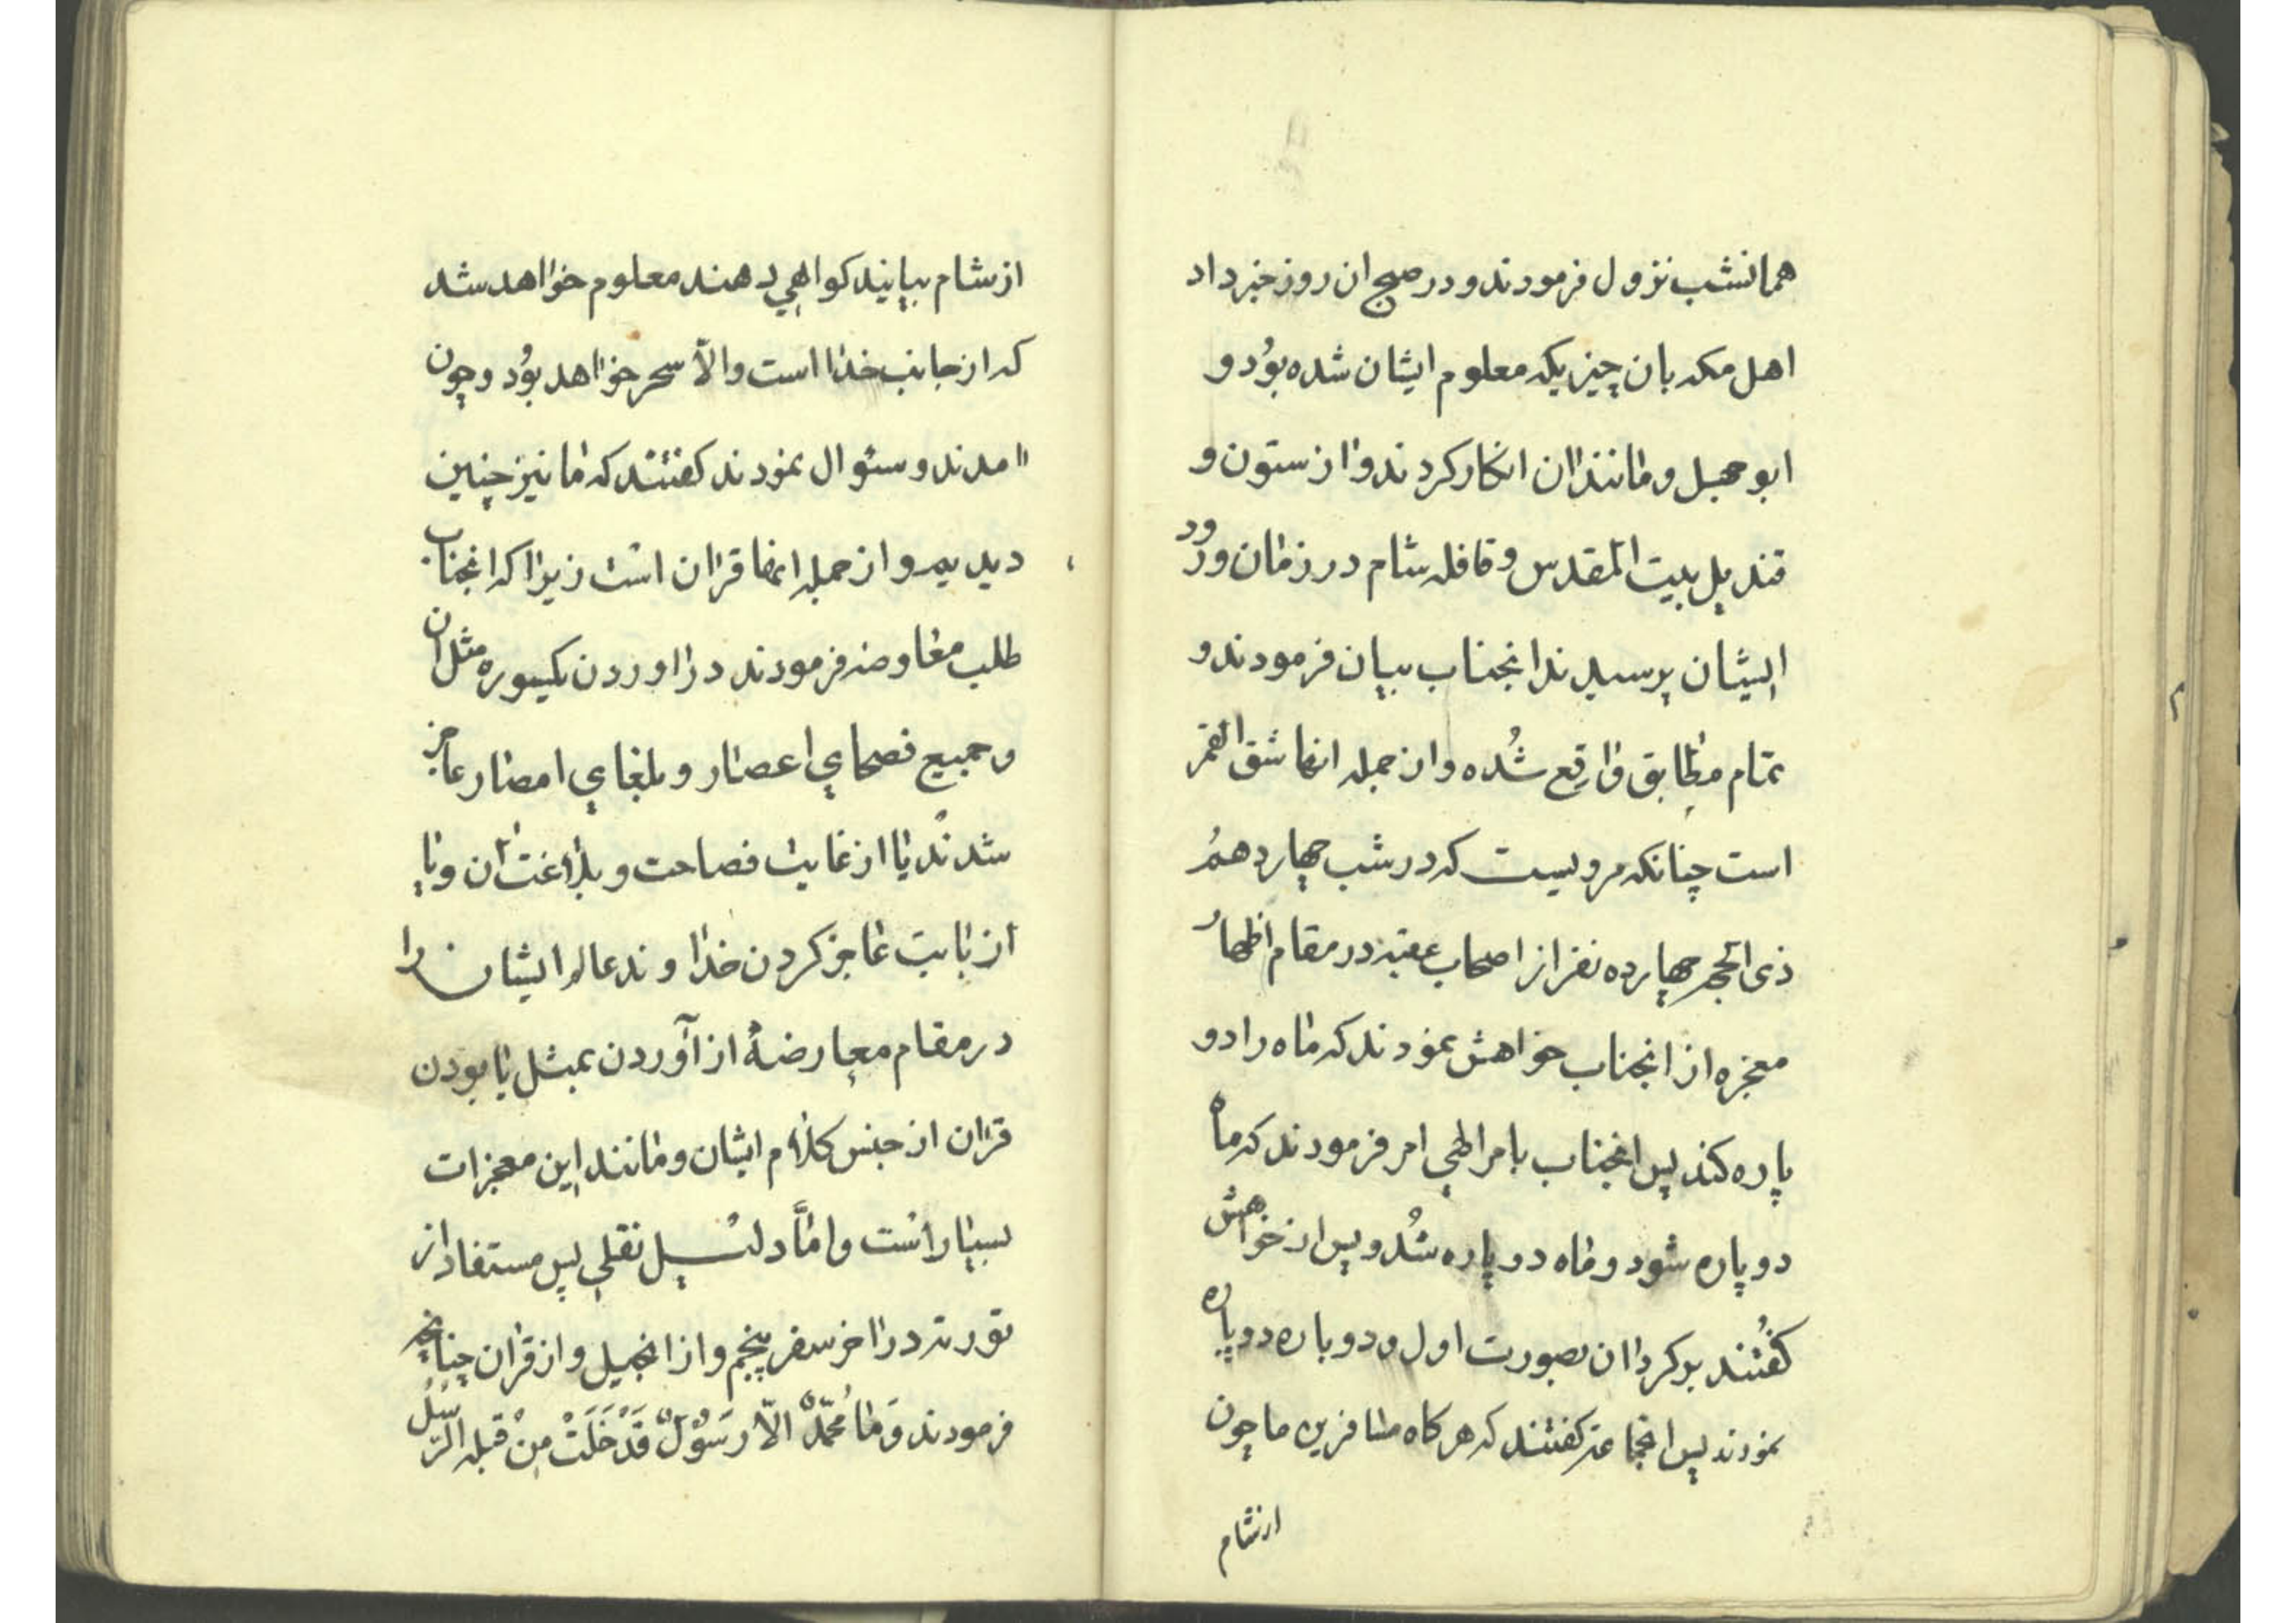 همانشب نزول فرمودند و در صبح ان روز خبر داد
اهل مکه بان چیزیکه معلوم ایشان شده بُود و
ابو جهل و مانند ان انکار کردند و از ستون و
قندیل بیت المقدس و قافله شام در زمان ورود
ایشان پرسیدند انجناب بیان فرمودند و
تمام مطابق واقع شُده و از جمله انها شق القمر
است چنانکه مرویست که در شب چهاردهمُ
ذی الحجه چهارده نفر از اصحاب عقبه در مقام اظهار
معجزه از انجناب خواهش نمودند که ماه را دو
پاره کند پس انجناب بامر الهی امر فرمودند که ماه
دو پاره شود و ماه دو پاره شُد و پس از خواهش
کفُتند بر کرد ان بصورت اول و دوباره دو پاره
نمودند پس انجماعة کفتند که هر کاه مسافرین ما چون
از شام
از شام بیایند کواهی دهند معلوم خواهد شد
که از جانب خدا است والاّ سحر خواهد بُود و چون
امدند و سئوال نمودند کفتند که ما نیز چنین
دیدیم و از جمله انها قران است زیرا که انجناب
طلب معاوضه فرمودند در اوردن یکسوره مثل ان
و جمیع فصحای اعصار و بلغای امصار عاجز
شدند یا از غایت فصاحت و بلاغت ان و یا
از بابت عاجز کردن خداوند عالم ایشان را
در مقام معارضهٔ از آوردن بمثل یا بودن
قران از جنس کلام ایشان و مانند این معجزات
بسیار است و امَّا دلیل نقلی پس مستفاد از
تورته در اخر سفر پنجم و از انجیل و از قران چنانچه
فرمودند وَمٰا مُحَمّدٌ الاّ رَسُوْلٌ قَدْ خَلَتْ مِنْ قبله الرّسُلُ